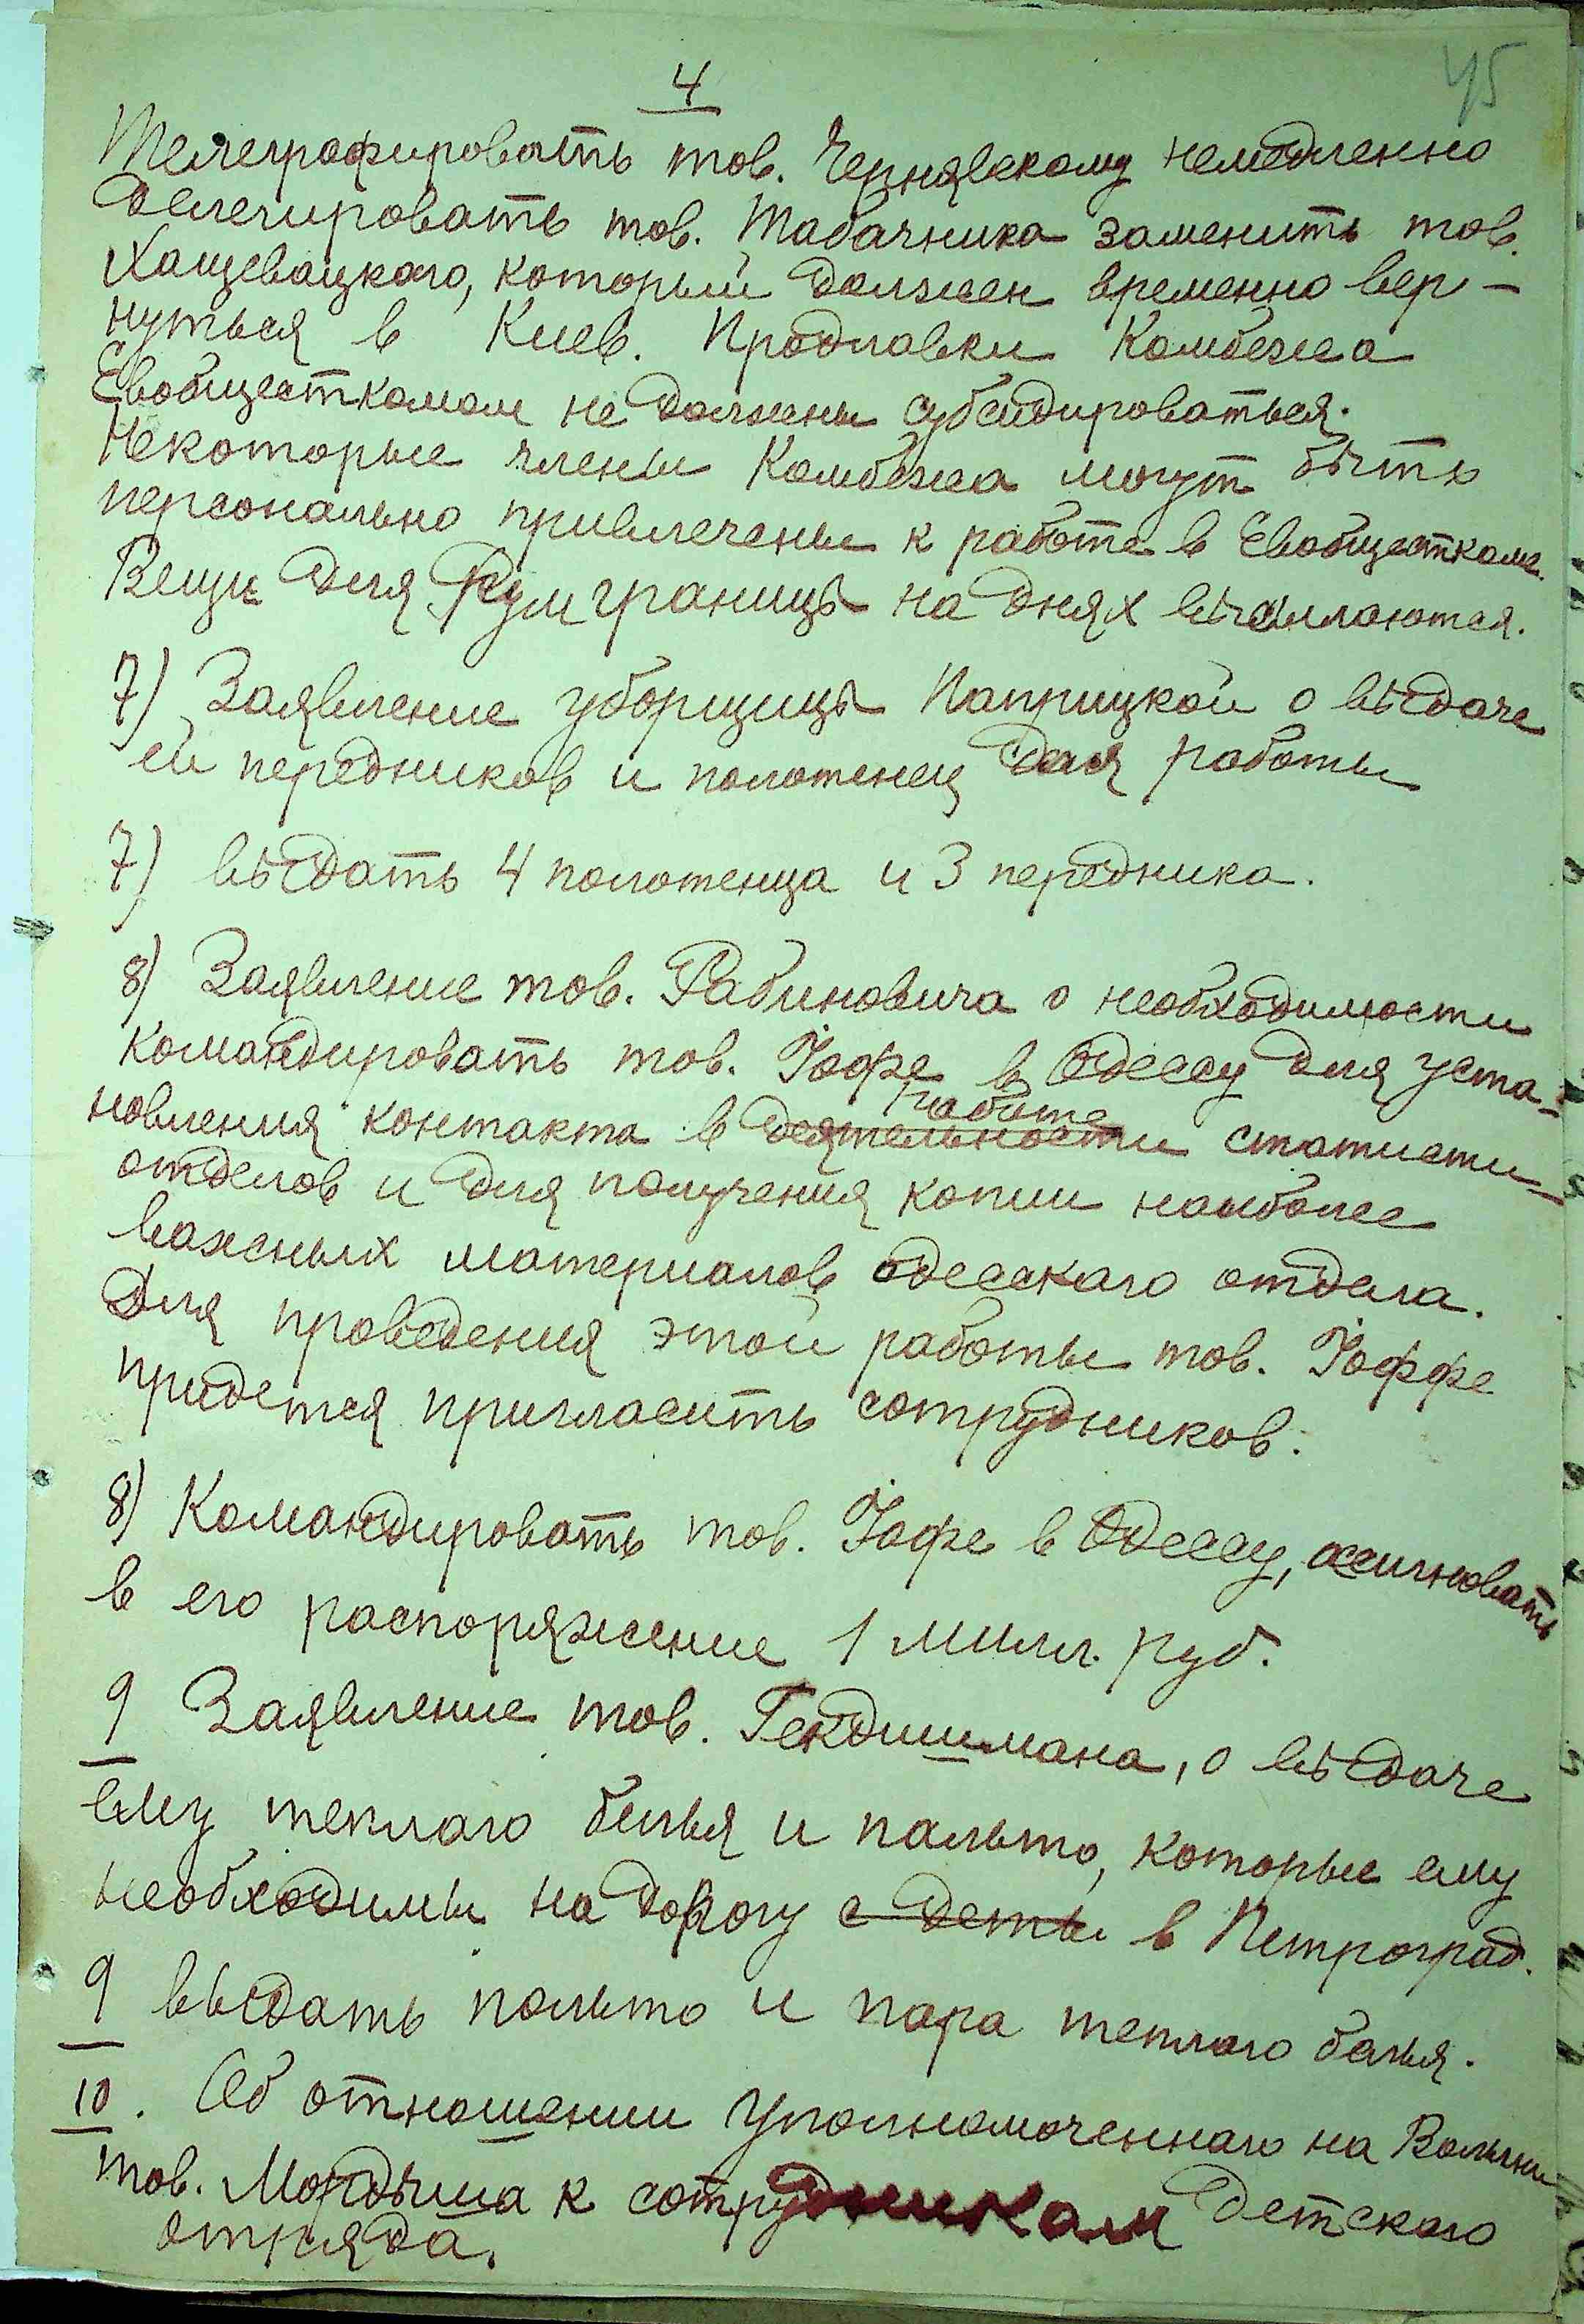 45
4
Телеграфировать тов. Чернявскому немедленно
делегировать тов. Табачника заменить тов.
Хащевацкого, который должен временно вер-
нуться в Киев. Продлавки Комбежа
Евобщесткомом не должны субсидироваться.
Некоторые члены Комбежа могут быть
персонально привлечены к работе в Евобщестком.
Вещи для Рум границы на днях высылаются.
7) Заявление уборщицы Паприцкой о выдаче
ей передников и полотенец для работы
7) выдать 4 полотенца и 3 передника.
8) Заявление тов. Рабиновича о необходимости
командировать тов. Іофе в Одессу для уста-
работе
новления контакта в деятельности статисти-
отделов и для получения копии наиболее
важных материалов одесского отдела.
Для проведения этой работы тов. Іоффе
придется пригласить сотрудников.
8) Командировать тов. Іофе в Одессу, ассигновать
в его распоряжение 1 милл. руб.
9 Заявление тов. Гекдишмана, о выдаче
ему теплаго белья и пальто, которые ему
необходимы на дорогу с деты в Петроград.
9 выдать пальто и пара теплаго балья.
10. Об отношении Уполномоченнаго на Волыни
тов. Мордыша к сотрудникам Детского
отряда.